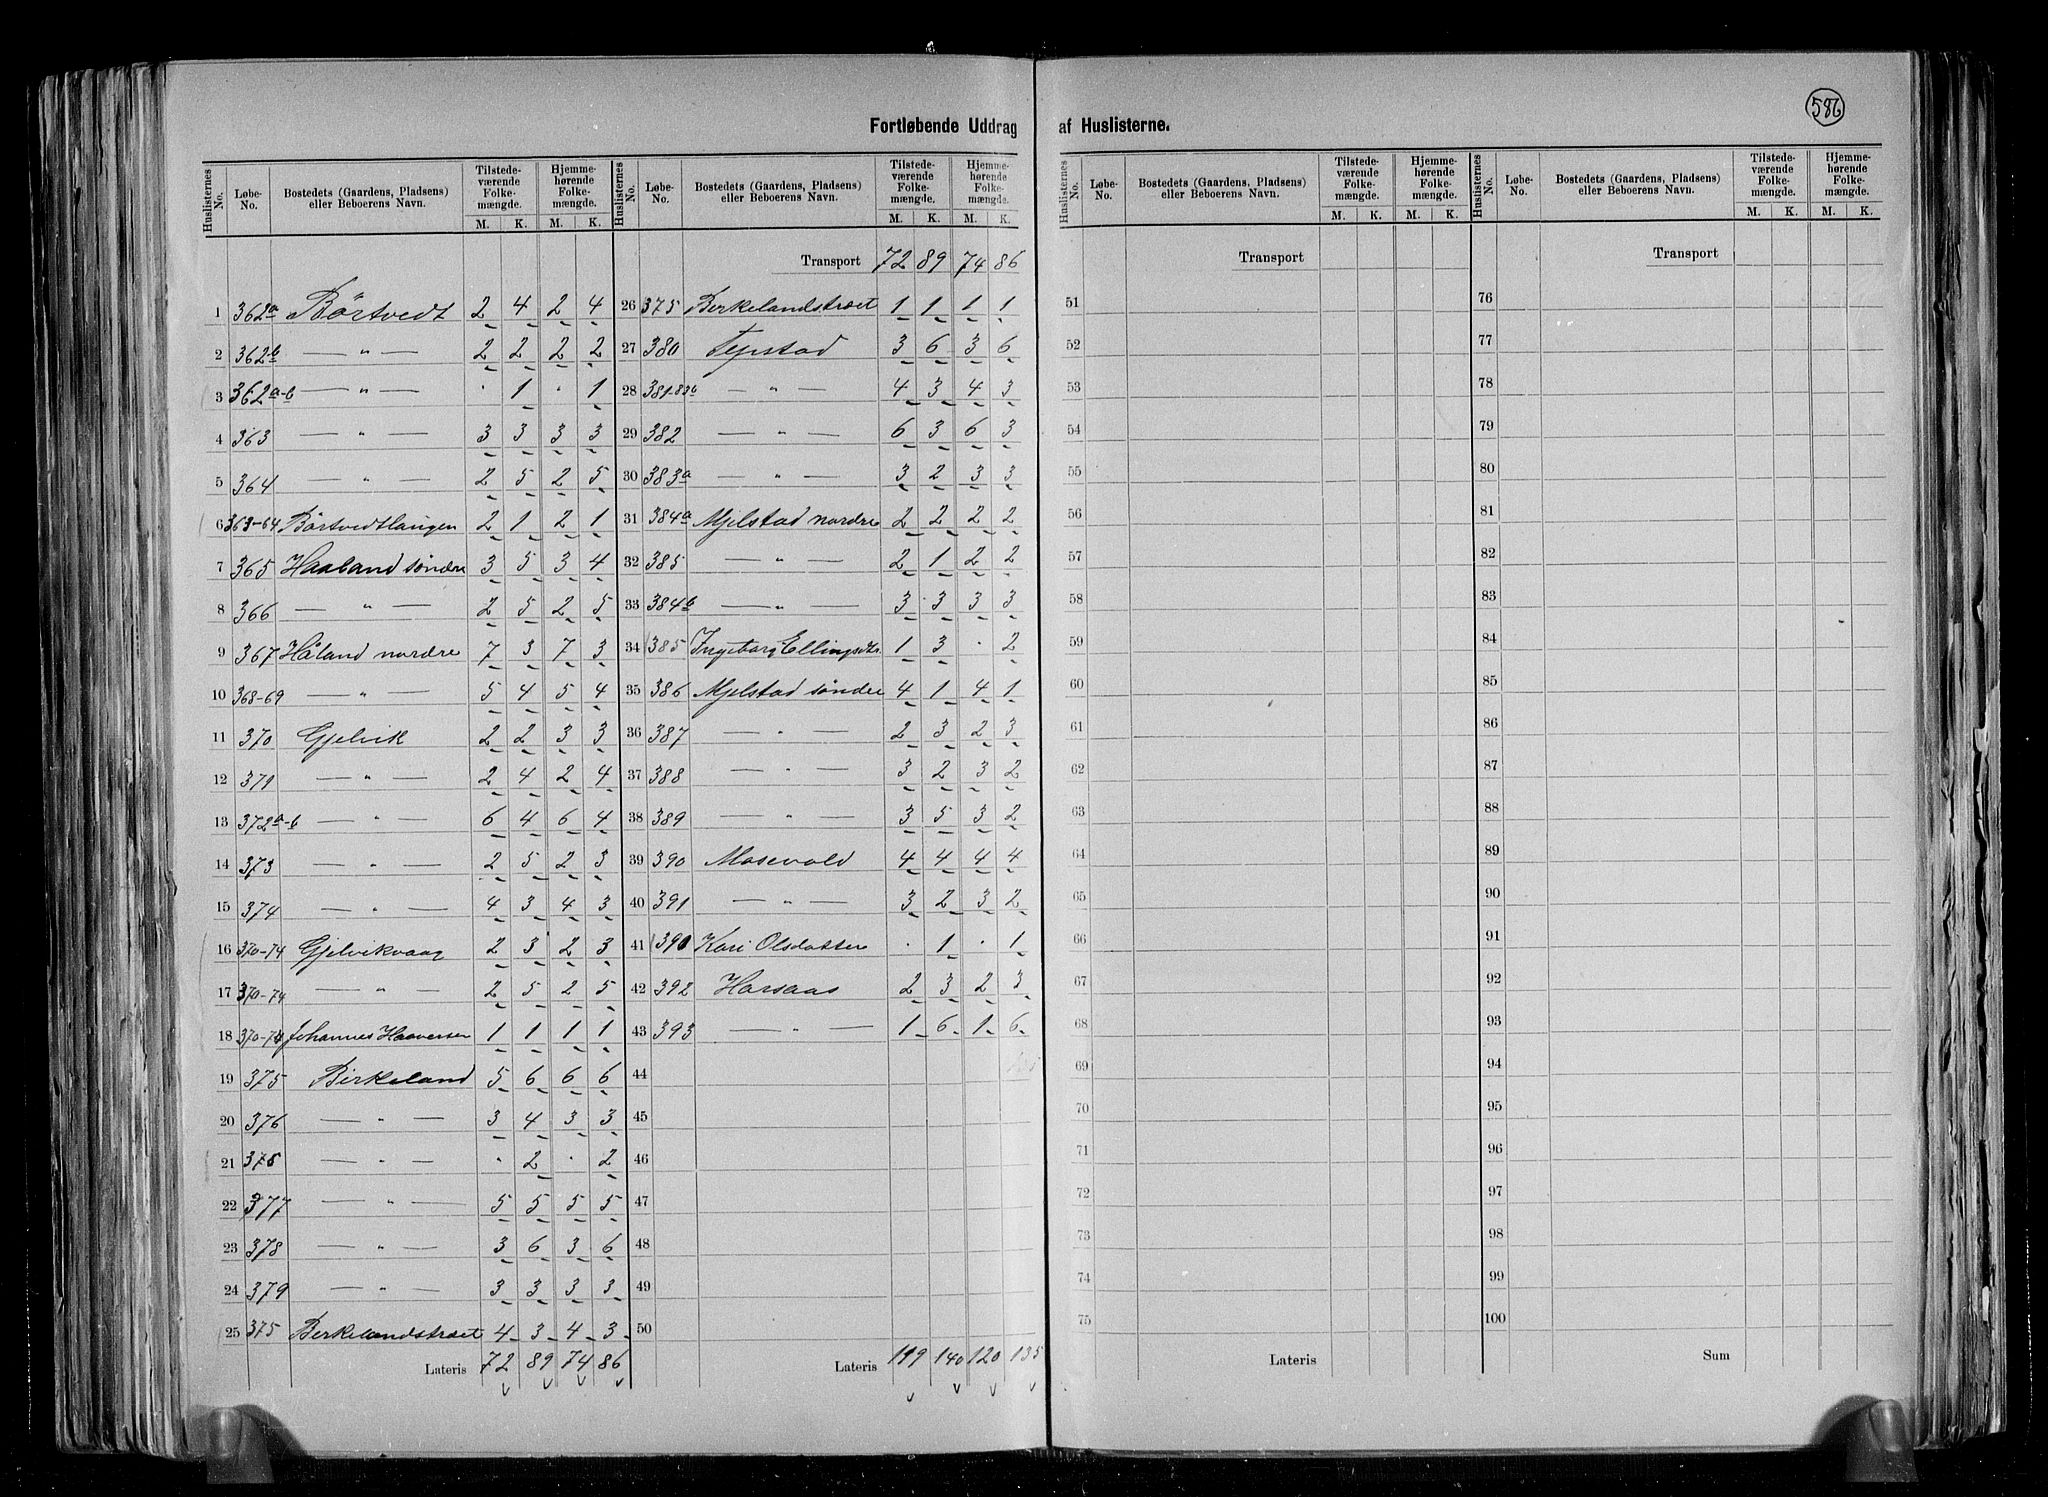 586
Fortløbende Uddrag af Huslisterne.
Huslisternes No. Løbe-No. Bostedets (Gaardens, Pladsens) eller Beboerens Navn. Tilstedeværende Folkemængde. M. K. Hjemmehørende Folkemængde. M. K.
1 362a Börtvedt 2 4 2 4
2 362b — " — 2 2 2 2
3 362a-b — " — · 1 · 1
4 363 — " — 3 3 3 3
5 364 — " — 2 5 2 5
6 363-64 Börtvedtlangen 2 1 2 1
7 365 Haaland söndre 3 5 3 4
8 366 — " — 2 5 2 5
9 367 Håland nordre 7 3 7 3
10 368-69 — " — 5 4 5 4
11 370 Gjelvik 2 2 3 3
12 371 — " — 2 4 2 4
13 372a-b — " — 6 4 6 4
14 373 — " — 2 5 2 3
15 374 — " — 4 3 4 3
16 370-74 Gjelvikvaag 2 3 2 3
17 370-74 — " — 2 5 2 5
18 370-74 Johannes Haaversen 1 1 1 1
19 375 Birkeland 5 6 6 6
20 376 — " — 3 4 3 3
21 375 — " — · 2 · 2
22 377 — " — 5 5 5 5
23 378 — " — 3 6 3 6
24 379 — " — 3 3 3 3
25 375 Berkelandstræet 4 3 4 3
Lateris 72 89 74 86
Huslisternes No. Løbe-No. Bostedets (Gaardens, Pladsens) eller Beboerens Navn. Tilstedeværende Folkemængde. M. K. Hjemmehørende Folkemængde. M. K.
Transport 72 89 74 86
26 375 Berkelandstræet 1 1 1 1
27 380 Tepstad 3 6 3 6
28 381-83b — " — 4 3 4 3
29 382 — " — 6 3 6 3
30 383a — " — 3 2 3 3
31 384a Mjelstad nordre 2 2 2 2
32 385 — " — 2 1 2 2
33 384b — " — 3 3 3 3
34 385 Ingeborg Ellingsdtr. 1 3 · 2
35 386 Mjelstad søndre 4 1 4 1
36 387 — " — 2 3 2 3
37 388 — " — 3 2 3 2
38 389 — " — 3 5 3 2
39 390 Mosevold 4 4 4 4
40 391 — " — 3 2 3 2
41 390 Kari Olsdatter · 1 · 1
42 392 Horsaas 2 3 2 3
43 393 — " — 1 6 1 6
44
45
46
47
48
49
50
Lateris 119 140 120 135
Huslisternes No. Løbe-No. Bostedets (Gaardens, Pladsens) eller Beboerens Navn. Tilstedeværende Folkemængde. M. K. Hjemmehørende Folkemængde. M. K.
Transport
51
52
53
54
55
56
57
58
59
60
61
62
63
64
65
66
67
68
69
70
71
72
73
74
75
Lateris
Huslisternes No. Løbe-No. Bostedets (Gaardens, Pladsens) eller Beboerens Navn. Tilstedeværende Folkemængde. M. K. Hjemmehørende Folkemængde. M. K.
Transport
76
77
78
79
80
81
82
83
84
85
86
87
88
89
90
91
92
93
94
95
96
97
98
99
100
Sum